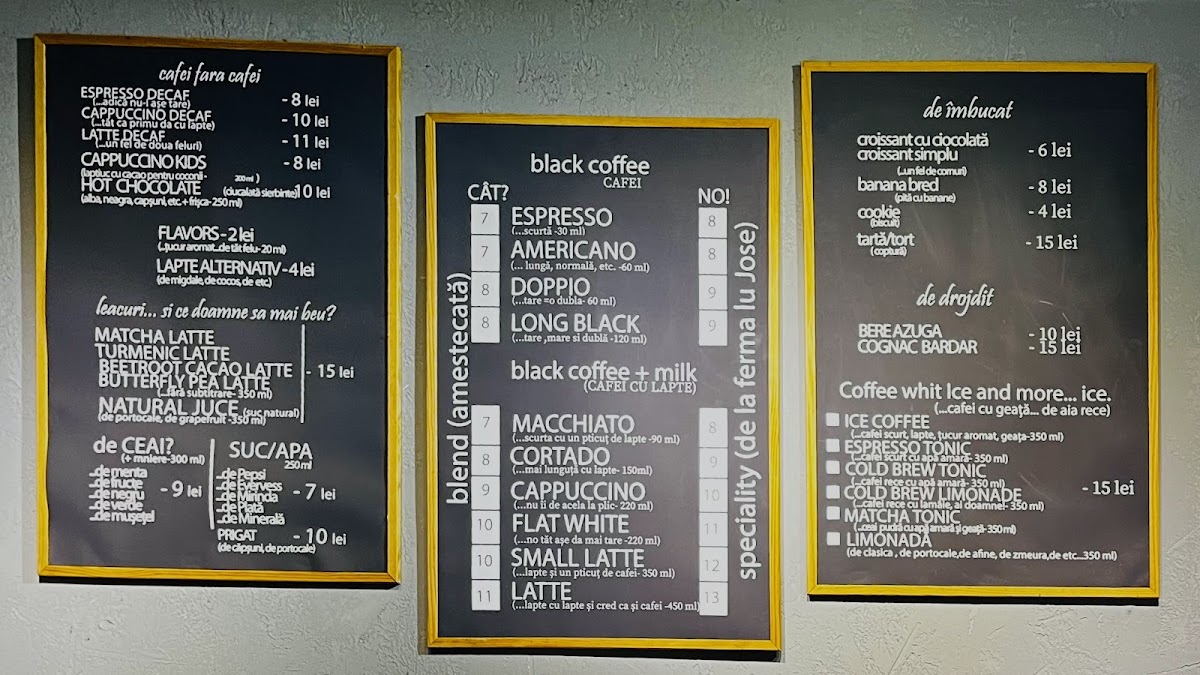 cafei fara cafei
ESPRESSO DECAF - 8 lei
(...adică nu-i așe tare)
CAPPUCCINO DECAF - 10 lei
(...tăt ca primu da cu lapte)
LATTE DECAF - 11 lei
(...un fel de doua feluri)
CAPPUCCINO KIDS - 8 lei
(laptiuc cu cacao pentru coconii - 200 ml )
HOT CHOCOLATE (ciucalată sierbinte) 10 lei
(alba, neagra, capșuni, etc. + frișca- 250 ml)
FLAVORS - 2 lei
(...țucur aromat...de tăt felu- 20 ml)
LAPTE ALTERNATIV - 4 lei
(de migdale, de cocos, de etc.)
leacuri... si ce doamne sa mai beu?
MATCHA LATTE
TURMENIC LATTE
BEETROOT CACAO LATTE - 15 lei
BUTTERFLY PEA LATTE
(...fără subtitrare- 350 ml)
NATURAL JUCE (suc natural)
(de portocale, de grapefruit -350 ml)
de CEAI?
(+ mniere-300 ml)
...de menta
...de fructe
...de negru - 9 lei
...de verde
...de mușețel
SUC/APA
250 ml
...de Pepsi
...de Evervess
...de Mirinda - 7 lei
...de Plată
...de Minerală
PRIGAT - 10 lei
(de căpșuni, de portocale)
black coffee
CAFEI
CÂT? NO!
7 ESPRESSO 8
(...scurtă -30 ml)
7 AMERICANO 8
(... lungă, normală, etc. -60 ml)
8 DOPPIO 9
(...tare =o dubla- 60 ml)
8 LONG BLACK 9
(...tare ,mare si dublă -120 ml)
black coffee + milk
(CAFEI CU LAPTE)
7 MACCHIATO 8
(...scurta cu un pticuț de lapte -90 ml)
8 CORTADO 9
(...mai lunguță cu lapte- 150ml)
9 CAPPUCCINO 10
(...nu îi de acela la plic- 220 ml)
10 FLAT WHITE 11
(...no tăt așe da mai tare -220 ml)
10 SMALL LATTE 12
(...lapte și un pticuț de cafei- 350 ml)
11 LATTE 13
(...lapte cu lapte și cred ca și cafei -450 ml)
blend (amestecată)
speciality (de la ferma lu Jose)
de îmbucat
croissant cu ciocolată
croissant simplu - 6 lei
(...un fel de cornuri)
banana bred - 8 lei
(pită cu banane)
cookie - 4 lei
(biscuit)
tartă/tort - 15 lei
(coptură)
de drojdit
BERE AZUGA - 10 lei
COGNAC BARDAR - 15 lei
Coffee whit Ice and more... ice.
(...cafei cu geață... de aia rece)
ICE COFFEE
(...cafei scurt, lapte, țucur aromat, geața-350 ml)
ESPRESSO TONIC
(...cafei scurt cu apă amară- 350 ml)
COLD BREW TONIC
(...cafei rece cu apă amară- 350 ml)
COLD BREW LIMONADE - 15 lei
(...cafei rece cu lamâie, ai doamne!- 350 ml)
MATCHA TONIC
(...ceai pudră cu apă amară și geață- 350 ml)
LIMONADĂ
(de clasica , de portocale,de afine, de zmeura,de etc...350 ml)